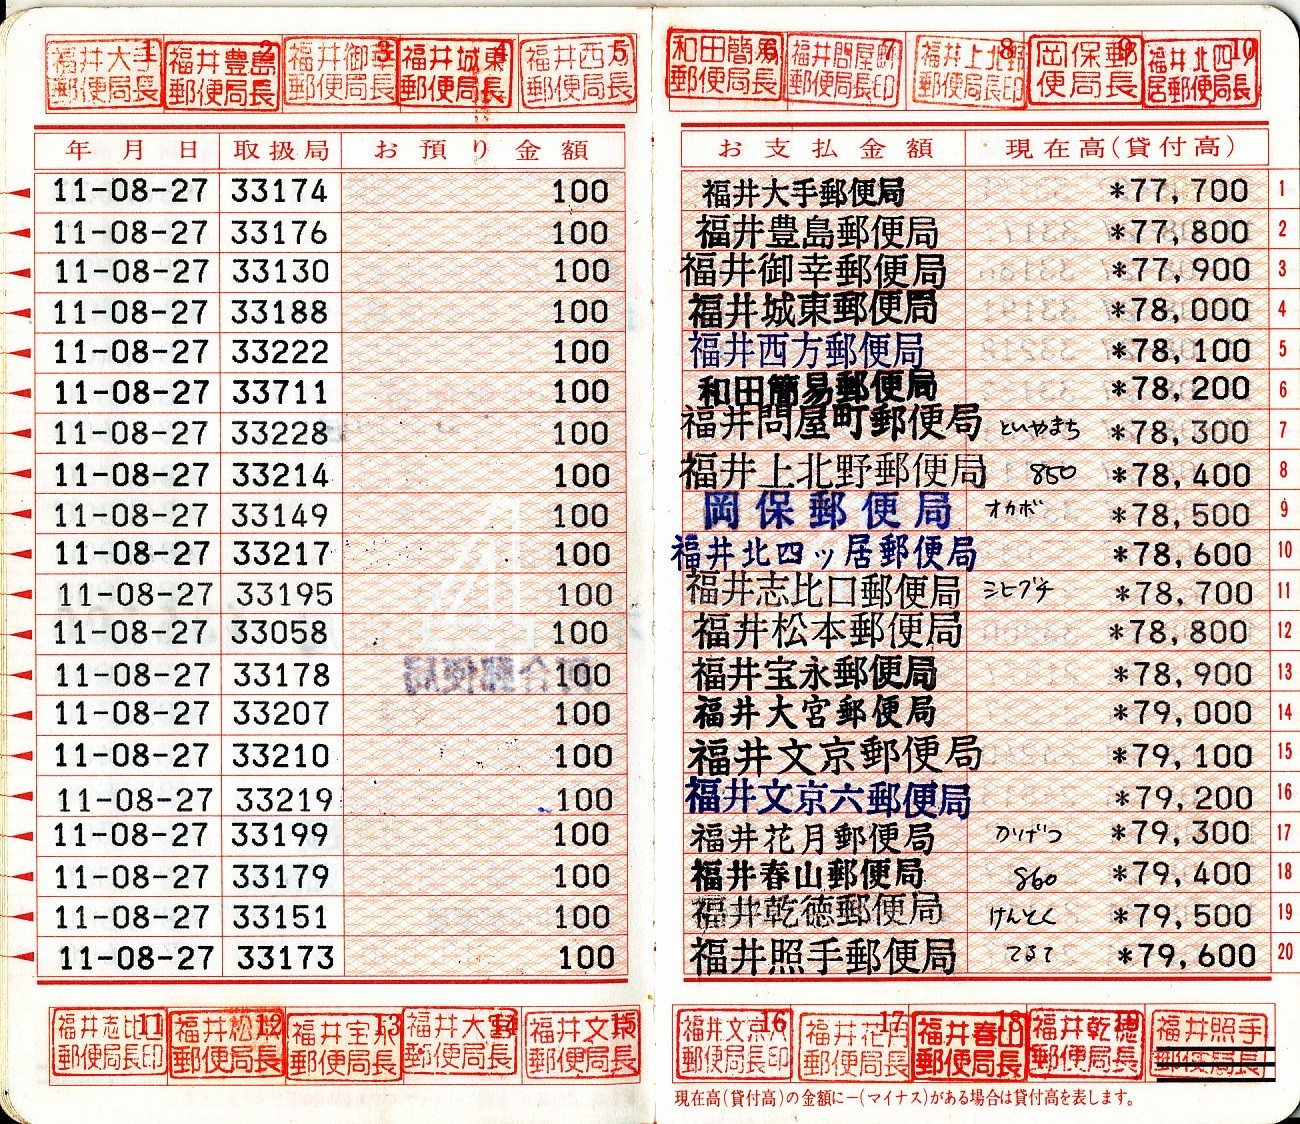 1 福井大手郵便局長
2 福井豊島郵便局長
3 福井御幸郵便局長
4 福井城東郵便局長
5 福井西方郵便局長
6 和田簡易郵便局長
7 福井問屋町郵便局長印
8 福井上北野郵便局長印
9 岡保郵便局長
10 福井北四ッ居郵便局長
年月日 取扱局 お預り金額 お支払金額 現在高(貸付高)
11-08-27 33174 100 福井大手郵便局 *77,700 1
11-08-27 33176 100 福井豊島郵便局 *77,800 2
11-08-27 33130 100 福井御幸郵便局 *77,900 3
11-08-27 33188 100 福井城東郵便局 *78,000 4
11-08-27 33222 100 福井西方郵便局 *78,100 5
11-08-27 33711 100 和田簡易郵便局 *78,200 6
11-08-27 33228 100 福井問屋町郵便局 といやまち *78,300 7
11-08-27 33214 100 福井上北野郵便局 850 *78,400 8
11-08-27 33149 100 岡保郵便局 オカボ *78,500 9
11-08-27 33217 100 福井北四ッ居郵便局 *78,600 10
11-08-27 33195 100 福井志比口郵便局 シヒグチ *78,700 11
11-08-27 33058 100 福井松本郵便局 *78,800 12
11-08-27 33178 100 福井宝永郵便局 *78,900 13
11-08-27 33207 100 福井大宮郵便局 *79,000 14
11-08-27 33210 100 福井文京郵便局 *79,100 15
11-08-27 33219 100 福井文京六郵便局 *79,200 16
11-08-27 33199 100 福井花月郵便局 かげつ *79,300 17
11-08-27 33179 100 福井春山郵便局 860 *79,400 18
11-08-27 33151 100 福井乾徳郵便局 けんとく *79,500 19
11-08-27 33173 100 福井照手郵便局 てるて *79,600 20
11 福井志比口郵便局長印
12 福井松本郵便局長
13 福井宝永郵便局長
14 福井大宮郵便局長
15 福井文京郵便局長
16 福井文京六郵便局長印
17 福井花月郵便局長
18 福井春山郵便局長
19 福井乾徳郵便局長
福井照手郵便局長
現在高(貸付高)の金額に−(マイナス)がある場合は貸付高を表します。